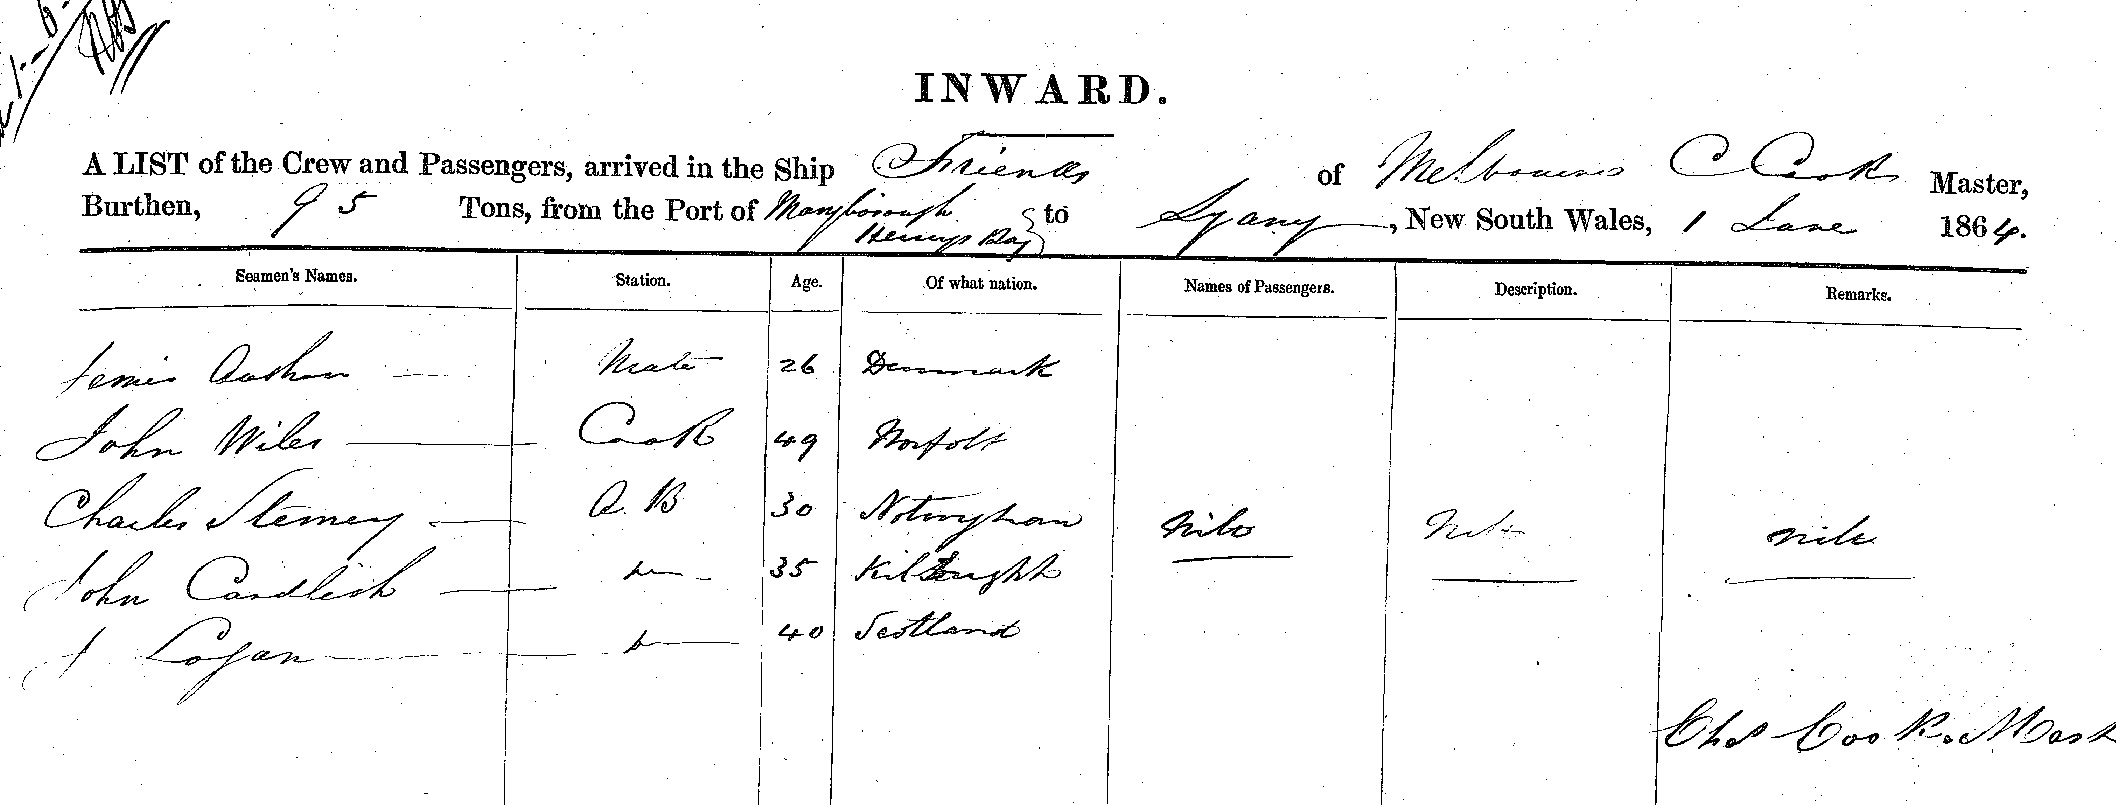 INWARD.
A LIST of the Crew and Passengers, arrived in the Ship Friends of Melbourne C Cook Master,
Burthen, 95 Tons, from the Port of Maryborough to Sydney, New South Wales, 1 June 1864.
Herveys Bay
Seamen's Names. Station. Age. Of what nation. Names of Passengers. Description. Remarks.
Mate 26 Denmark
John Wiles Cook 49 Norfolk
Charles A. B 30
John Candlish 35
J Logan 40 Scotland
Nil Nil Nil
Chas Cook. Mast